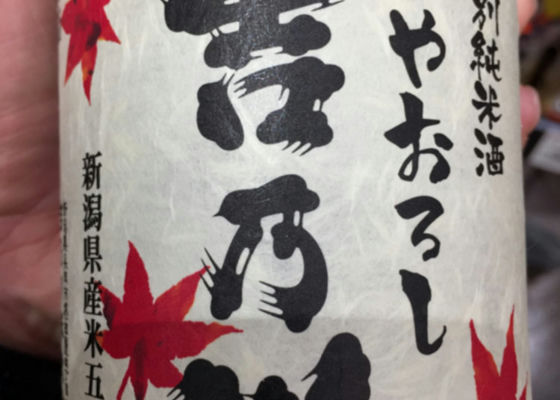 別純米酒
やおろし
吉乃
新潟県産米五